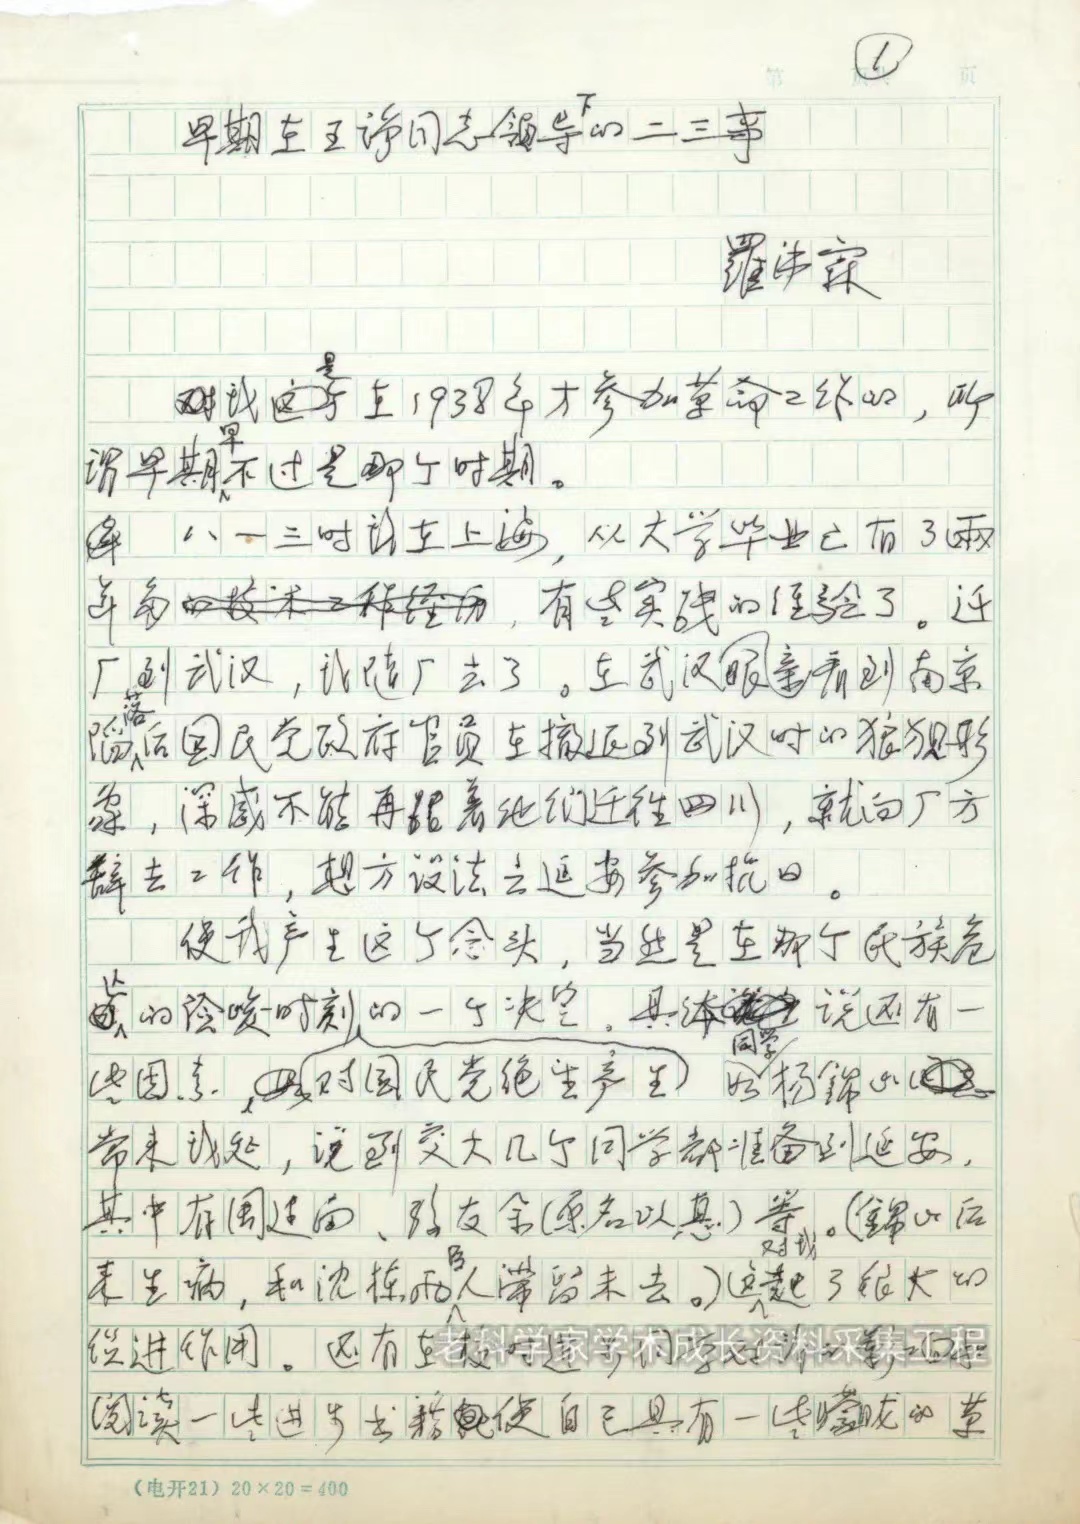 1
早期在王诤同志领导下的二三事
羅沛霖
对我这是于在1938年才参加革命工作的，所
谓早期早不过是那个时期。
八一三时我在上海，从大学毕业已有了兩
年多的技术工作经历，有些实践的经验了。迁
厂到武汉，我随厂去了。在武汉眼亲看到南京
陷落后国民党政府官员在撤退到武汉时的狼狈形
象，深感不能再跟着他们迁往四川，就向厂方
辞去工作，想方设法去延安参加抗日。
使我产生这个念头，当然是在那个民族危
的险峻时刻的一个决定。具体说还有一
些因素，对国民党绝望产生 如同学杨锦山
常来我处，说到交大几个同学都准备到延安，
其中有周建南、孙友余（原名以惠）等。（錦山后
来生病，和沈栋两人滞留未去。）这对我起了很大的
促进作用。还有在校时
阅读一些进步书籍使自己具有一些朦胧的革
老科学家学术成长资料采集工程
（电开21）20×20=400